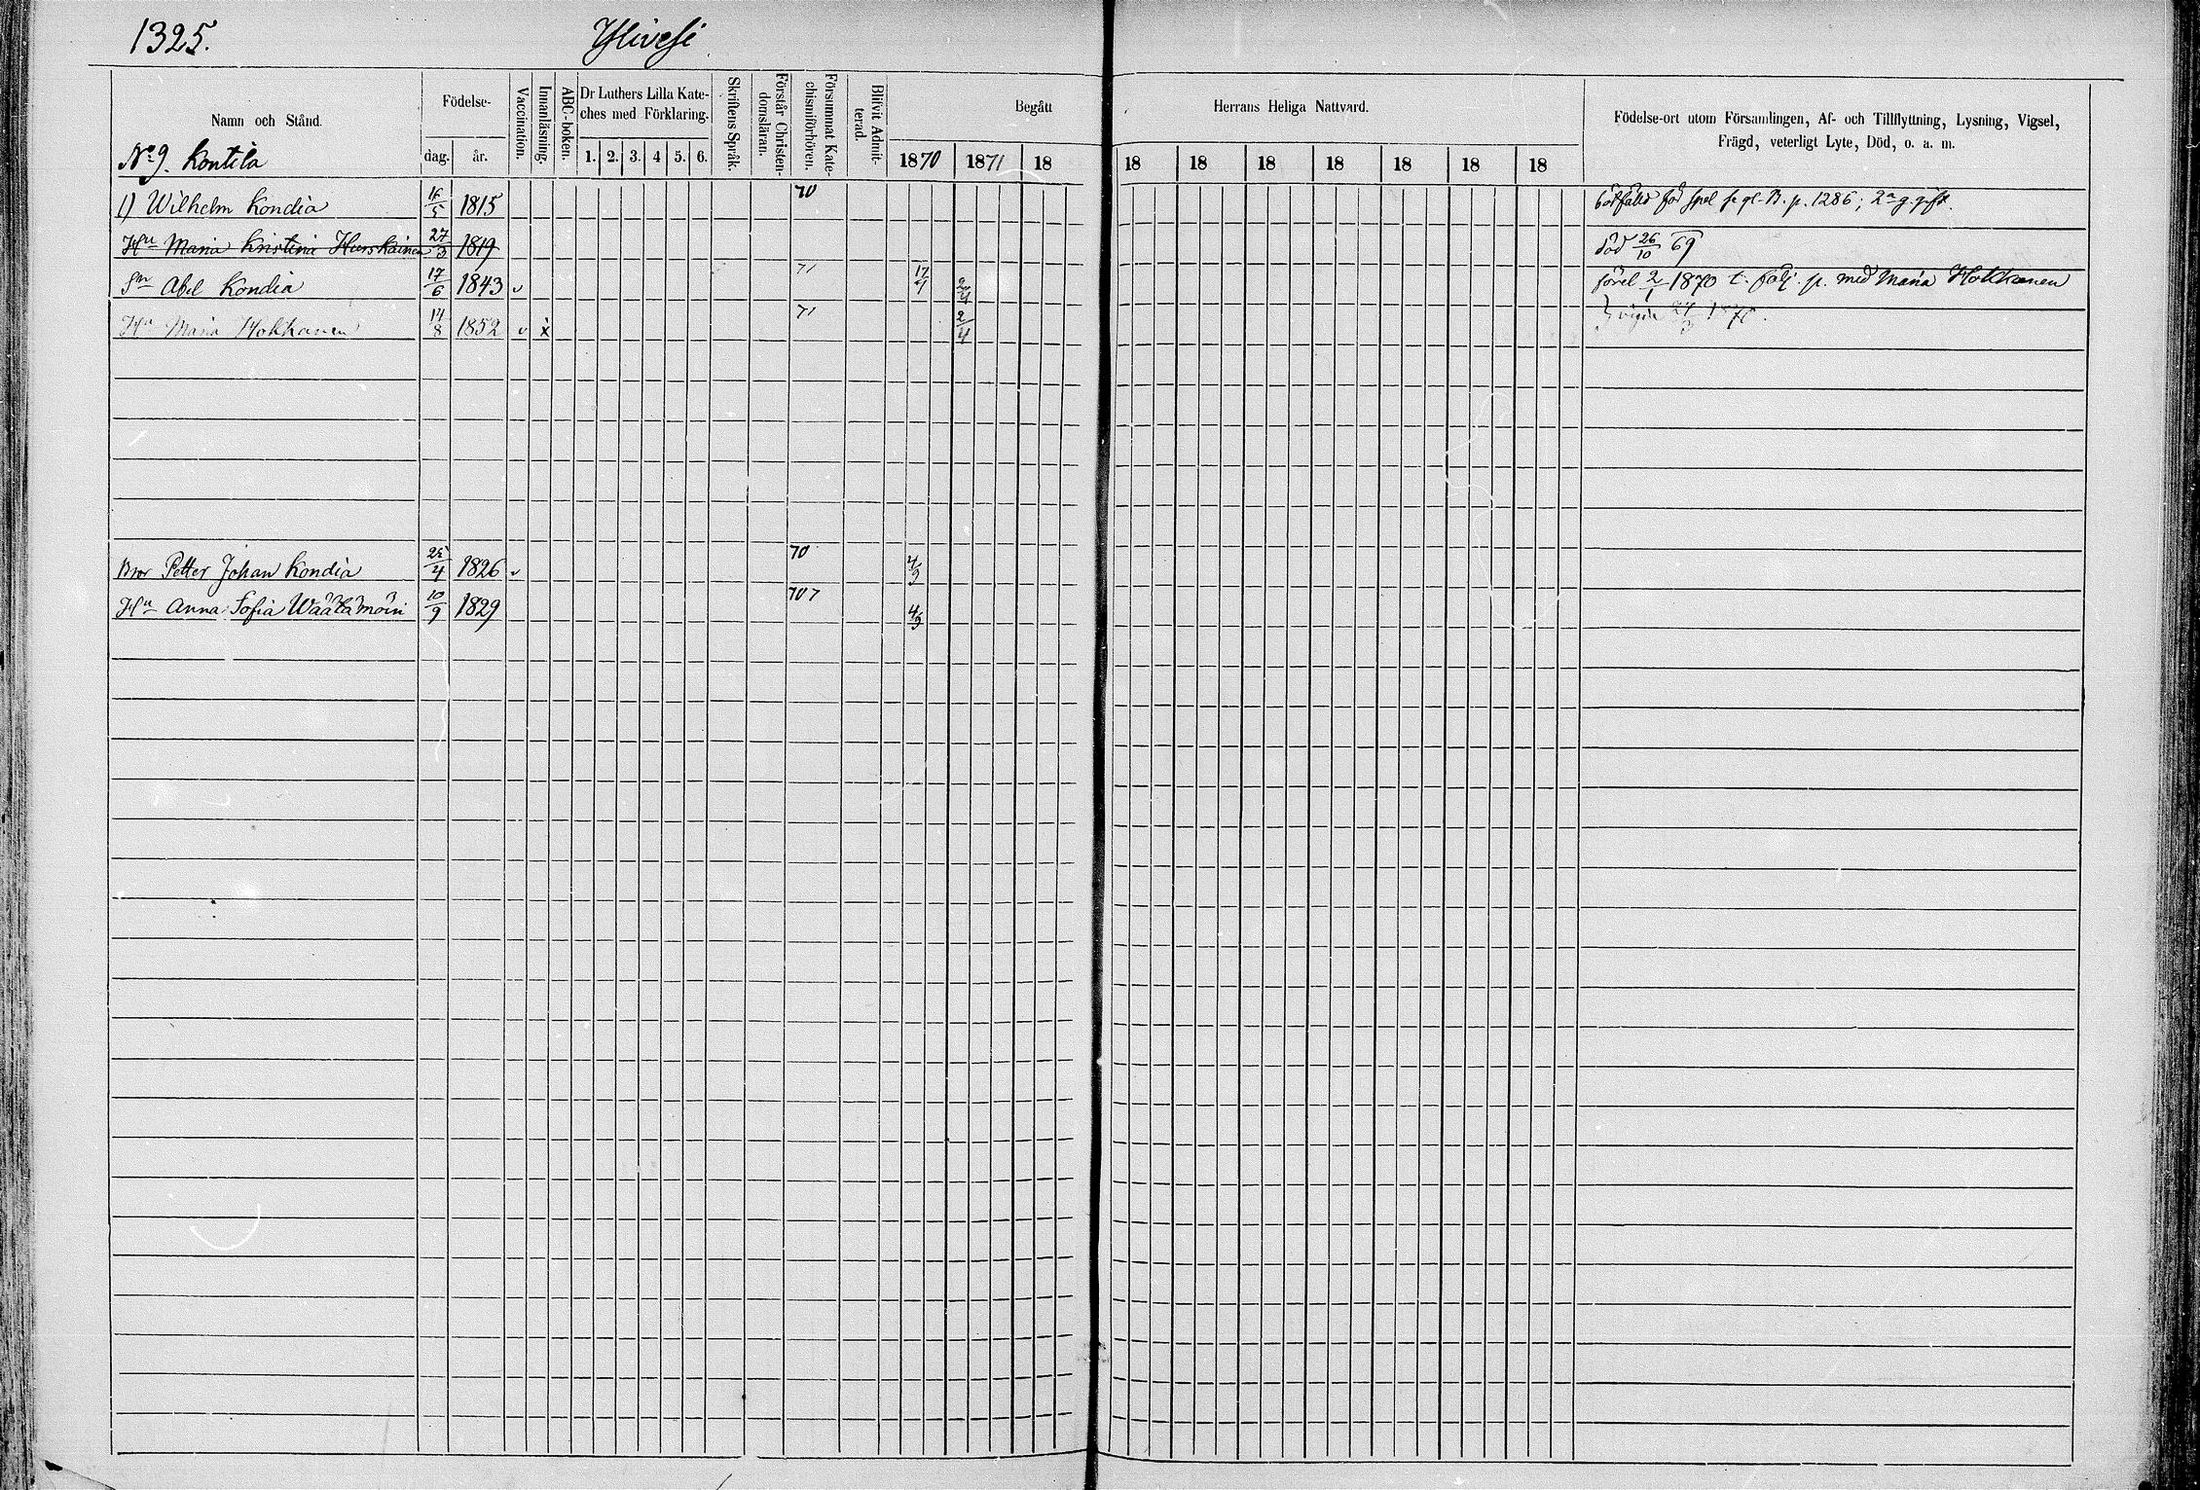 1325.
Ylivesi
Namn och Stånd.
Födelse-
dag.
år.
Vaccination.
Innanläsning.
ABC-boken.
Dr Luthers Lilla Kate-
ches med Förklaring.
1. 2. 3. 4 5. 6.
Skriftens Språk.
Förstår Christen-
domsläran.
Försummat Kate-
chismiförhören.
Blifvit Admit-
terad.
Begått
Herrans Heliga Nattvard.
1870 1871 18 18 18 18 18 18 18 18
Födelse-ort utom Församlingen, Af- och Tillflyttning, Lysning, Vigsel,
Frägd, veterligt Lyte, Död, o. a. m.
No 9. Kontila
1) Wilhelm Kondia 16/5 1815 70 bötfälld för spel p. 1286; 2a g. gift.
Hu Maria Kristina Hurskainen 27/3 1819 död 26/10 69
Sn Abel Kondia 17/6 1843 v 71 17/4 2/4 förel 2/1 1870 t. p. med Maria Hokkanen
Hu Maria Hokkanen 14/8 1852 v x 71 2/4
Bror Petter Johan Kondia 25/4 1826 v 70 4/9
Hu Anna Sofia Wäätämöin 10/9 1829 70 7 4/9